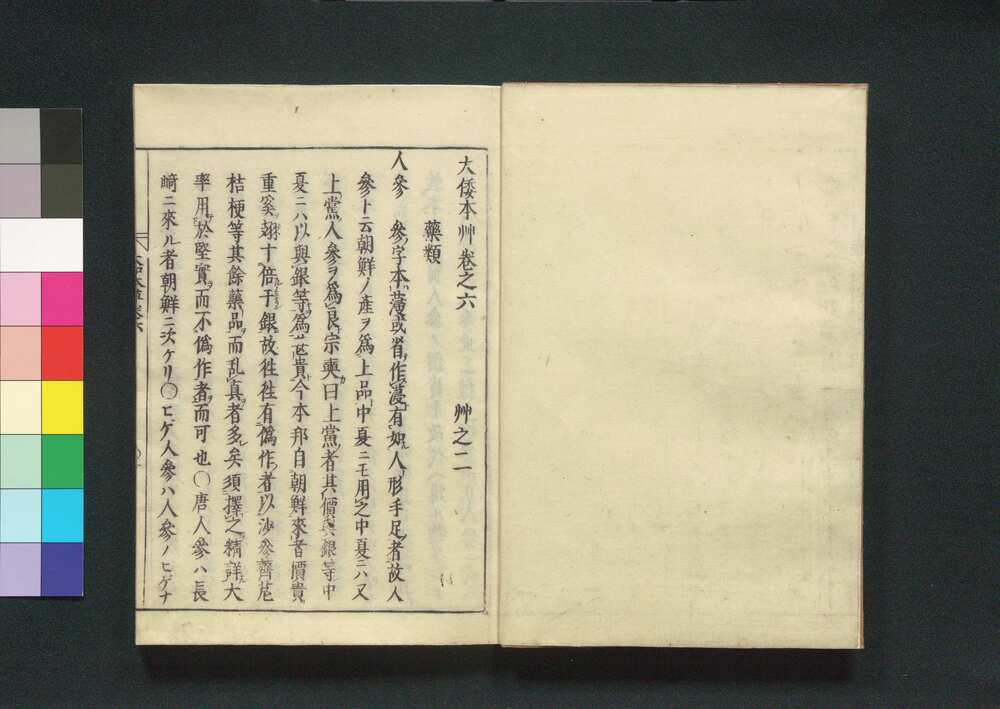 大倭本艸卷之六
藥類　艸之二
人參　參字本薓或省作蓡有如人形手足者故人
參ト云朝鮮ノ産ヲ為上品中夏ニモ用之中夏ニハ又
上黨人參ヲ為良宗奭曰上黨者其價與銀等中
夏ニハ以與銀等為甚貴今本邦自朝鮮來者價貴
重奚翅十倍于銀故徃徃有偽作者以沙參薺苨
枯梗等其餘藥品而乱真者多矣須擇之精詳大
率用於堅實而不偽作者而可也〇唐人參ハ長
﨑ニ來ル者朝鮮ニ次ケリ〇ヒゲ人參ハ人參ノヒゲナ